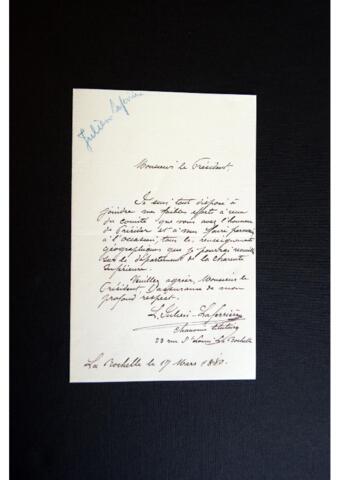 Julien Laferrière
Monsieur le Président,
Je suis tout disposé à
joindre mes faibles efforts à ceux
du comité que vous avez l'honneur
de Présider et à vous faire parvenir
à l'occasion, tous les renseignements
géographiques que je pourrai recueillir
sur le département de la charente
Inférieure.
Veuillez agréer, Monsieur le
Président, l'assurance de mon
profond respect.
L. Julien-Laferrière
chanoine titulaire
23 rue St Louis La Rochelle
La Rochelle le 17 Mars 1880.